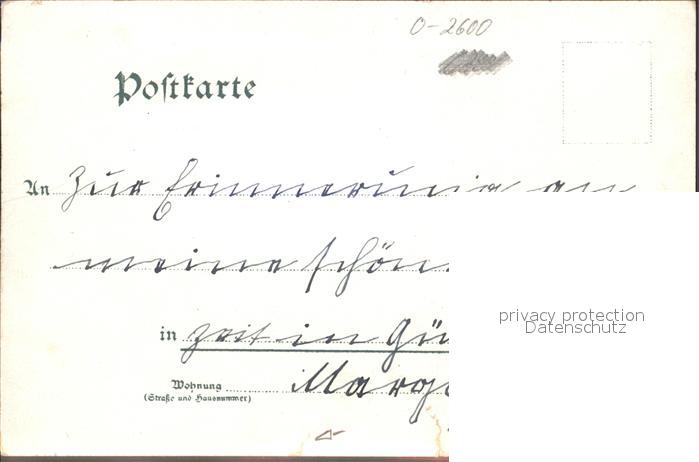 O-2600
Postkarte
An Zur Erinnerung an
meine schön
in Zeit in Gü
Wohnung Marg
(Straße und Hausnummer)
privacy protection
Datenschutz